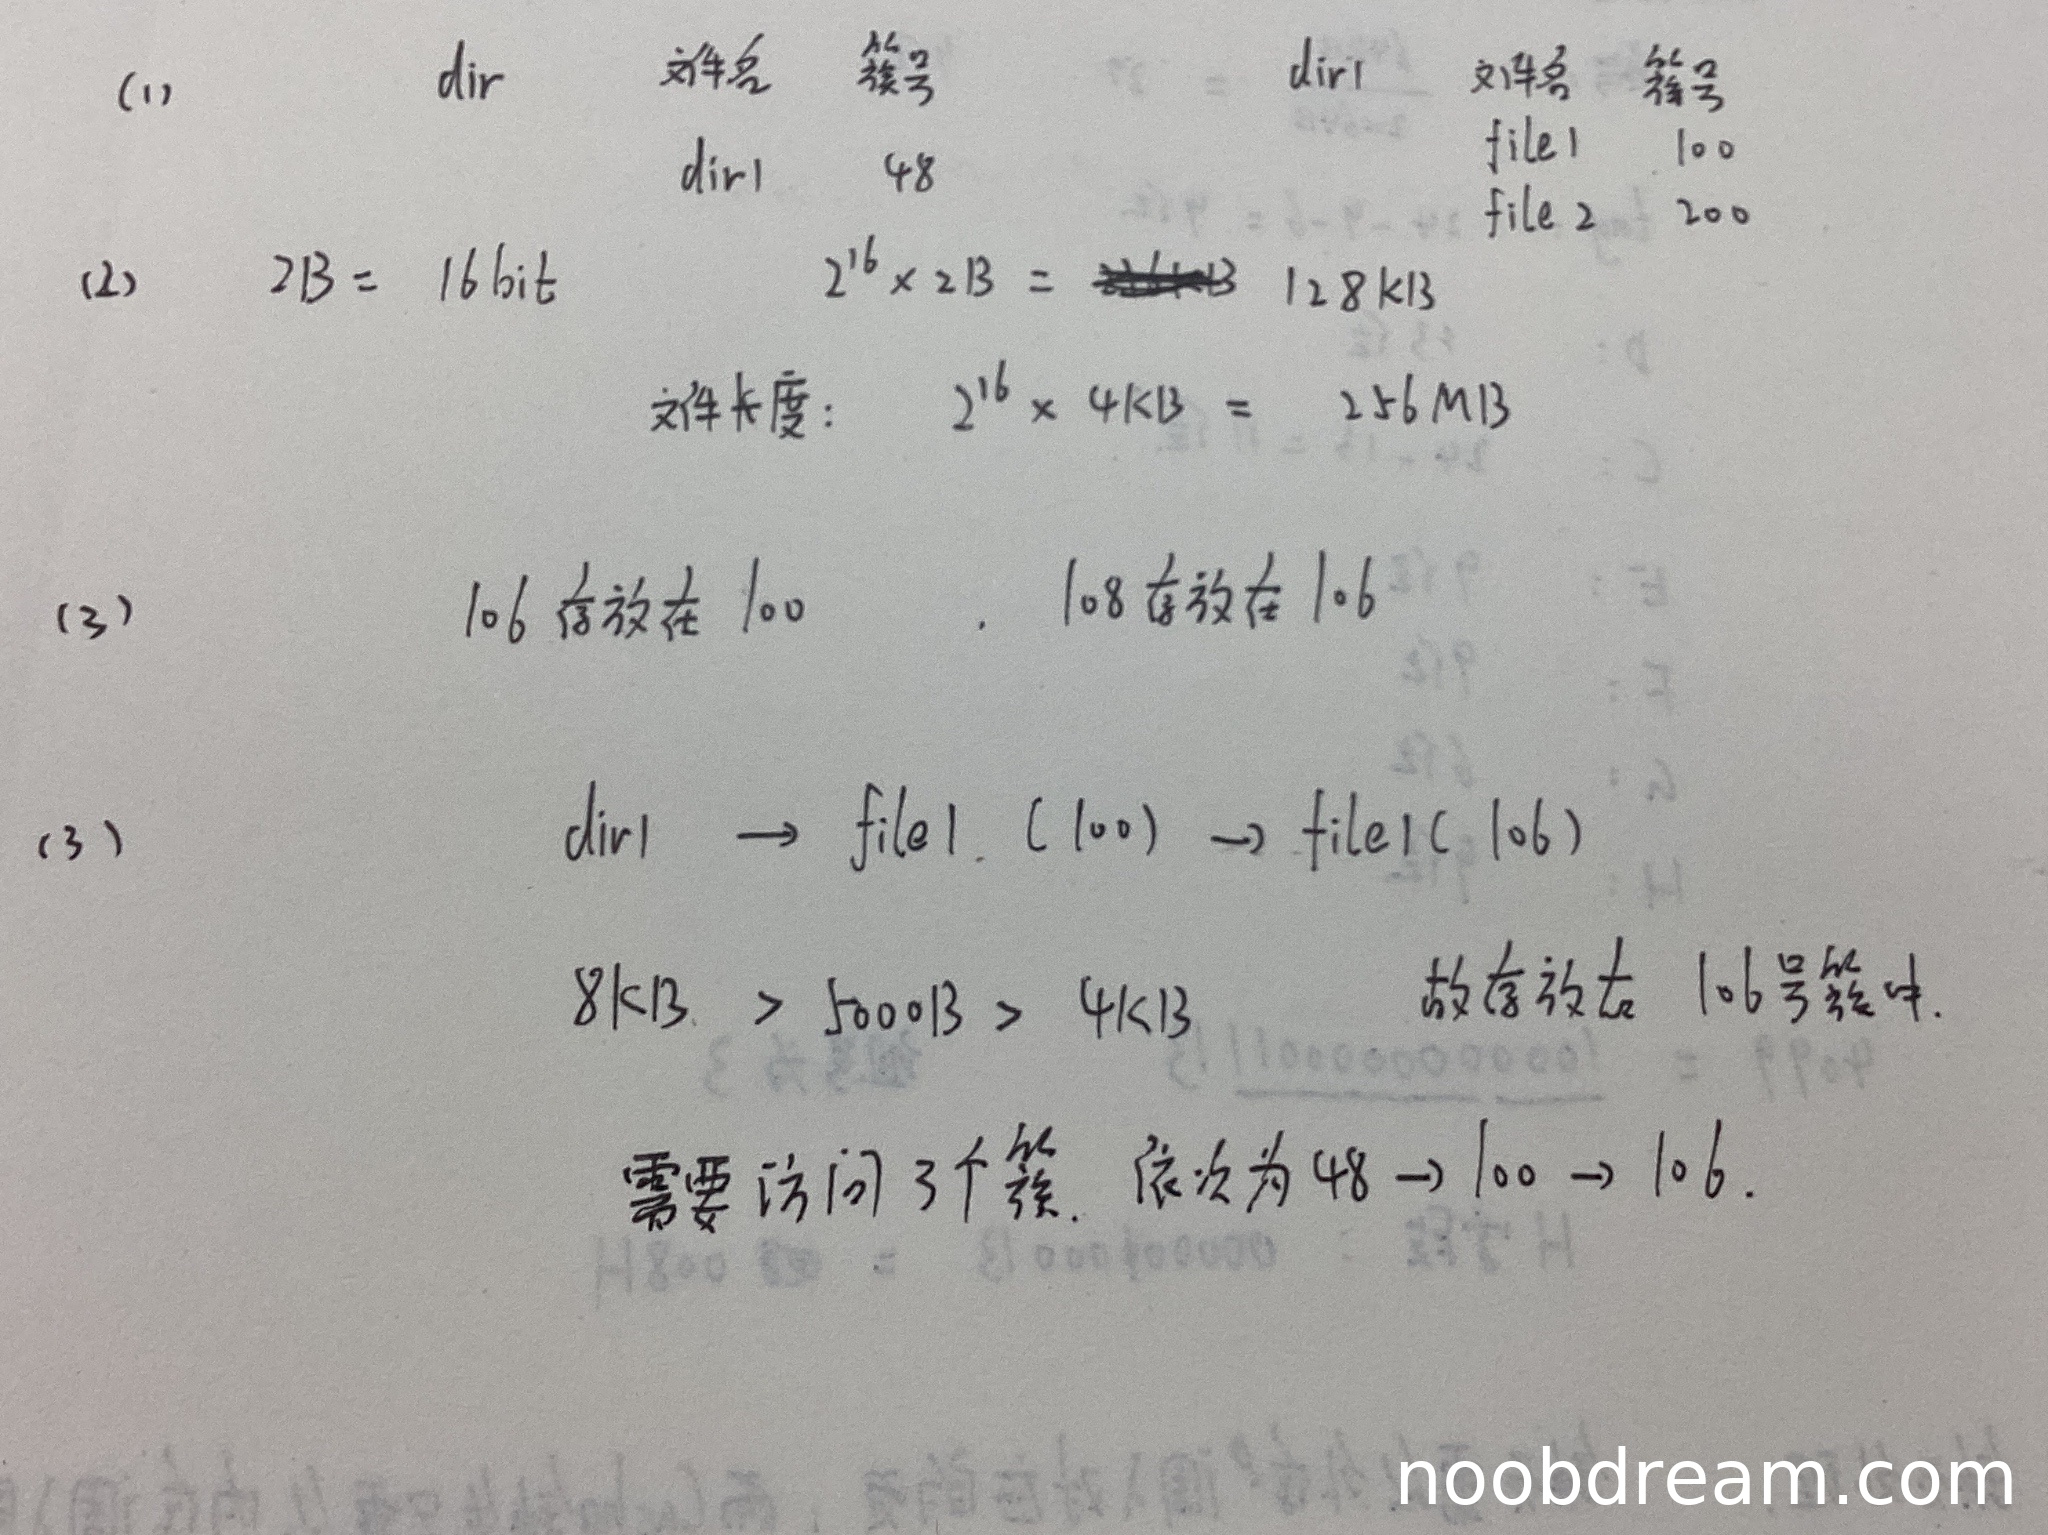 (1) dir 文件名 簇号 dir1 文件名 簇号
dir1 48 file1 100
file2 200
(2) 2B = 16bit 2^16 × 2B = 128KB
文件长度: 2^16 × 4KB = 256MB
(3) 106存放在100 . 108存放在106
(3) dir1 → file1. (100) → file1(106)
8KB. > 5000B > 4KB 故存放在 106号簇中.
需要访问3个簇. 依次为48→100→106.
noobdream.com